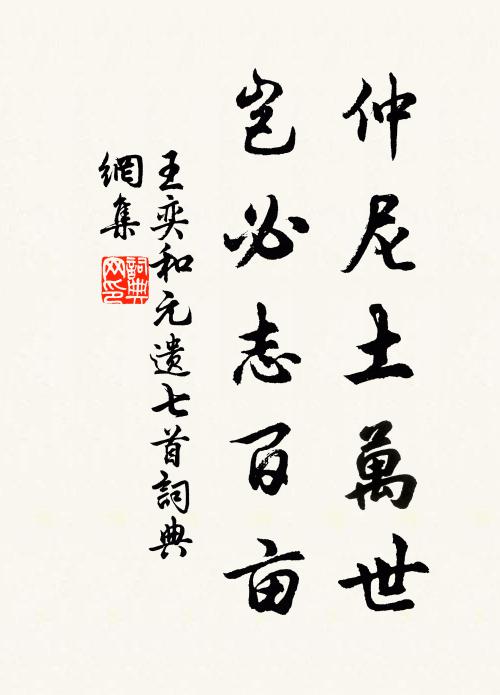 仲尼土萬世
岂必志百亩
王奕和元遗七首詞典
網集
詞典網印